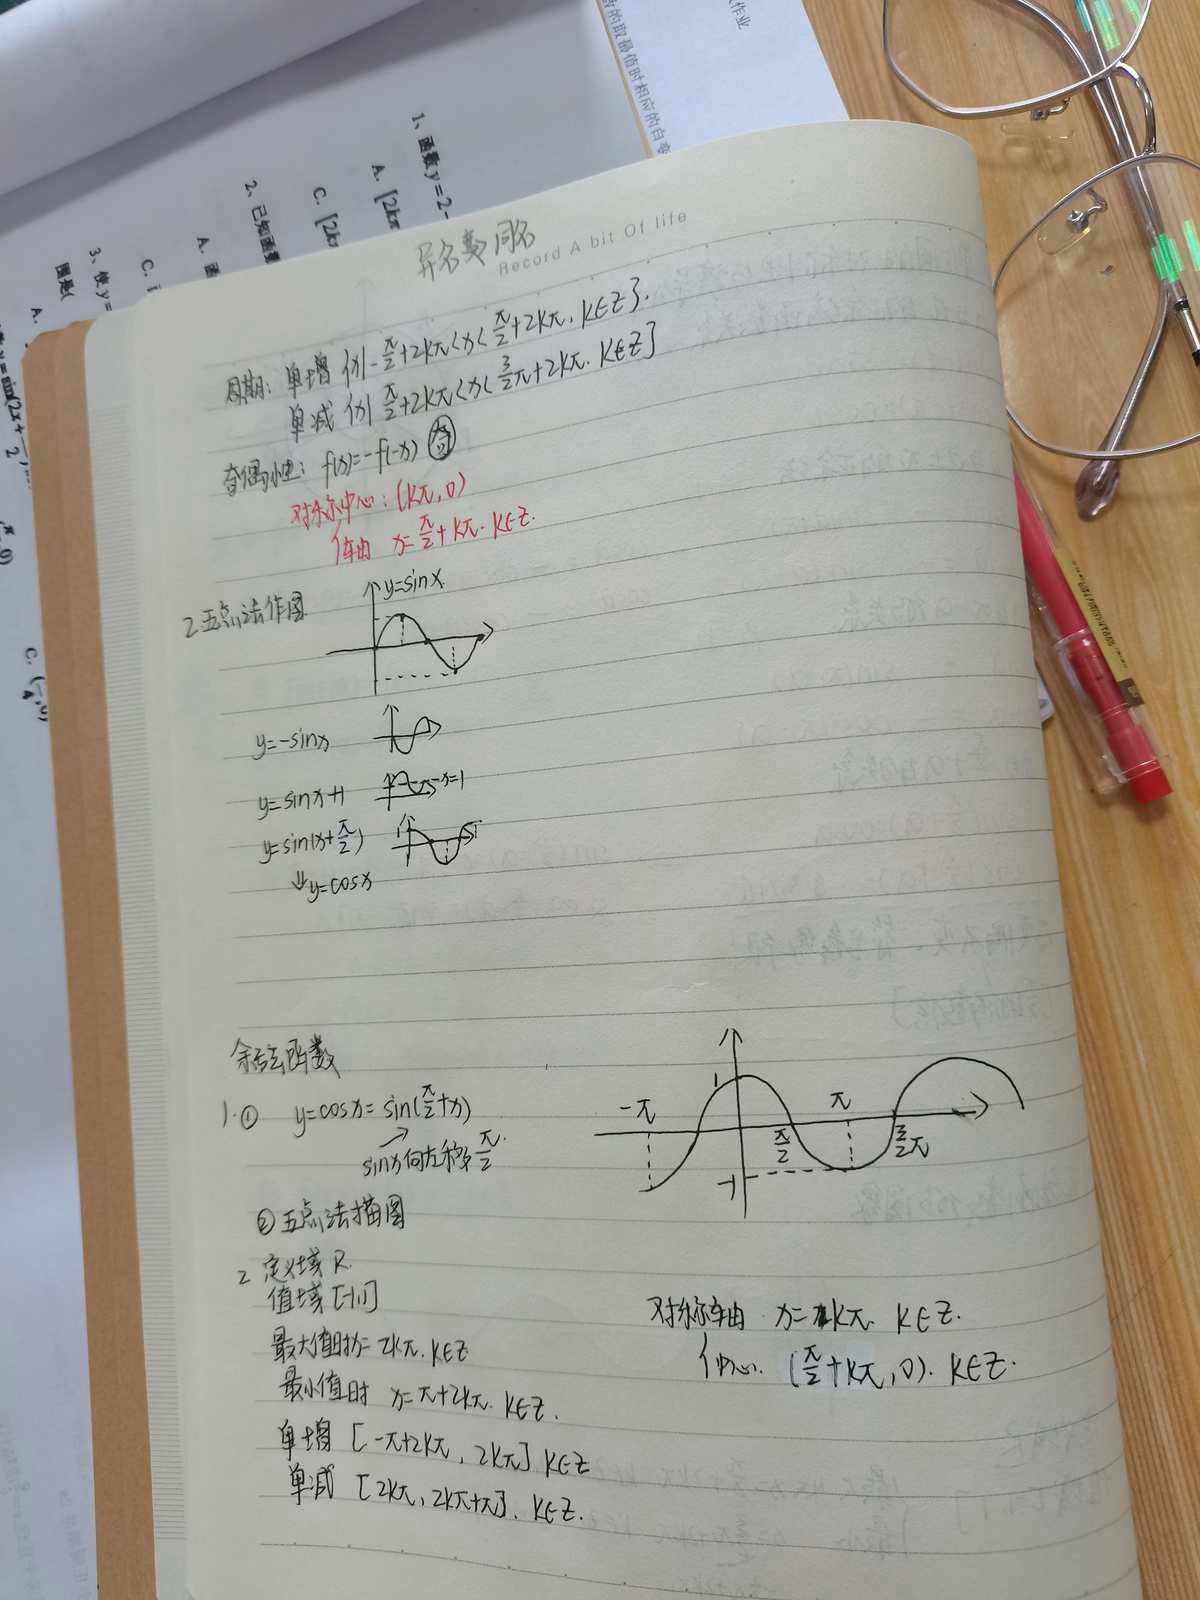 作业
的取最值时相应的自变
1、函数 y = 2 -
A. [2kπ
C. [2kπ
2、已知函数
A.
C.
3、使 y =
A.
y = sin(2x +
2
C. (
异名变同名
Record A bit Of life
周期: 单增 {x|-π/2+2kπ<x<π/2+2kπ, k∈Z}.
单减 {x|π/2+2kπ<x<3/2π+2kπ. k∈Z}
奇偶性: f(x)=-f(-x) 奇
对称中心: (kπ,0)
轴 x=π/2+kπ. k∈Z.
2 五点法作图
y=sinx
y=-sinx
y=sinx+1
x=1
y=sin(x+π/2)
⇓ y=cosx
余弦函数
1. ① y=cosx=sin(π/2+x)
sinx向左移π/2.
-π 1 π
π/2 3/2π
-1
② 五点法描图
2 定义域 R.
值域 [-1,1]
最大值时x=2kπ. k∈Z
最小值时 x=π+2kπ. k∈Z.
单增 [-π+2kπ, 2kπ] k∈Z
单减 [2kπ, 2kπ+π]. k∈Z.
对称轴 x=kπ. k∈Z.
中心. (π/2+kπ,0). k∈Z.